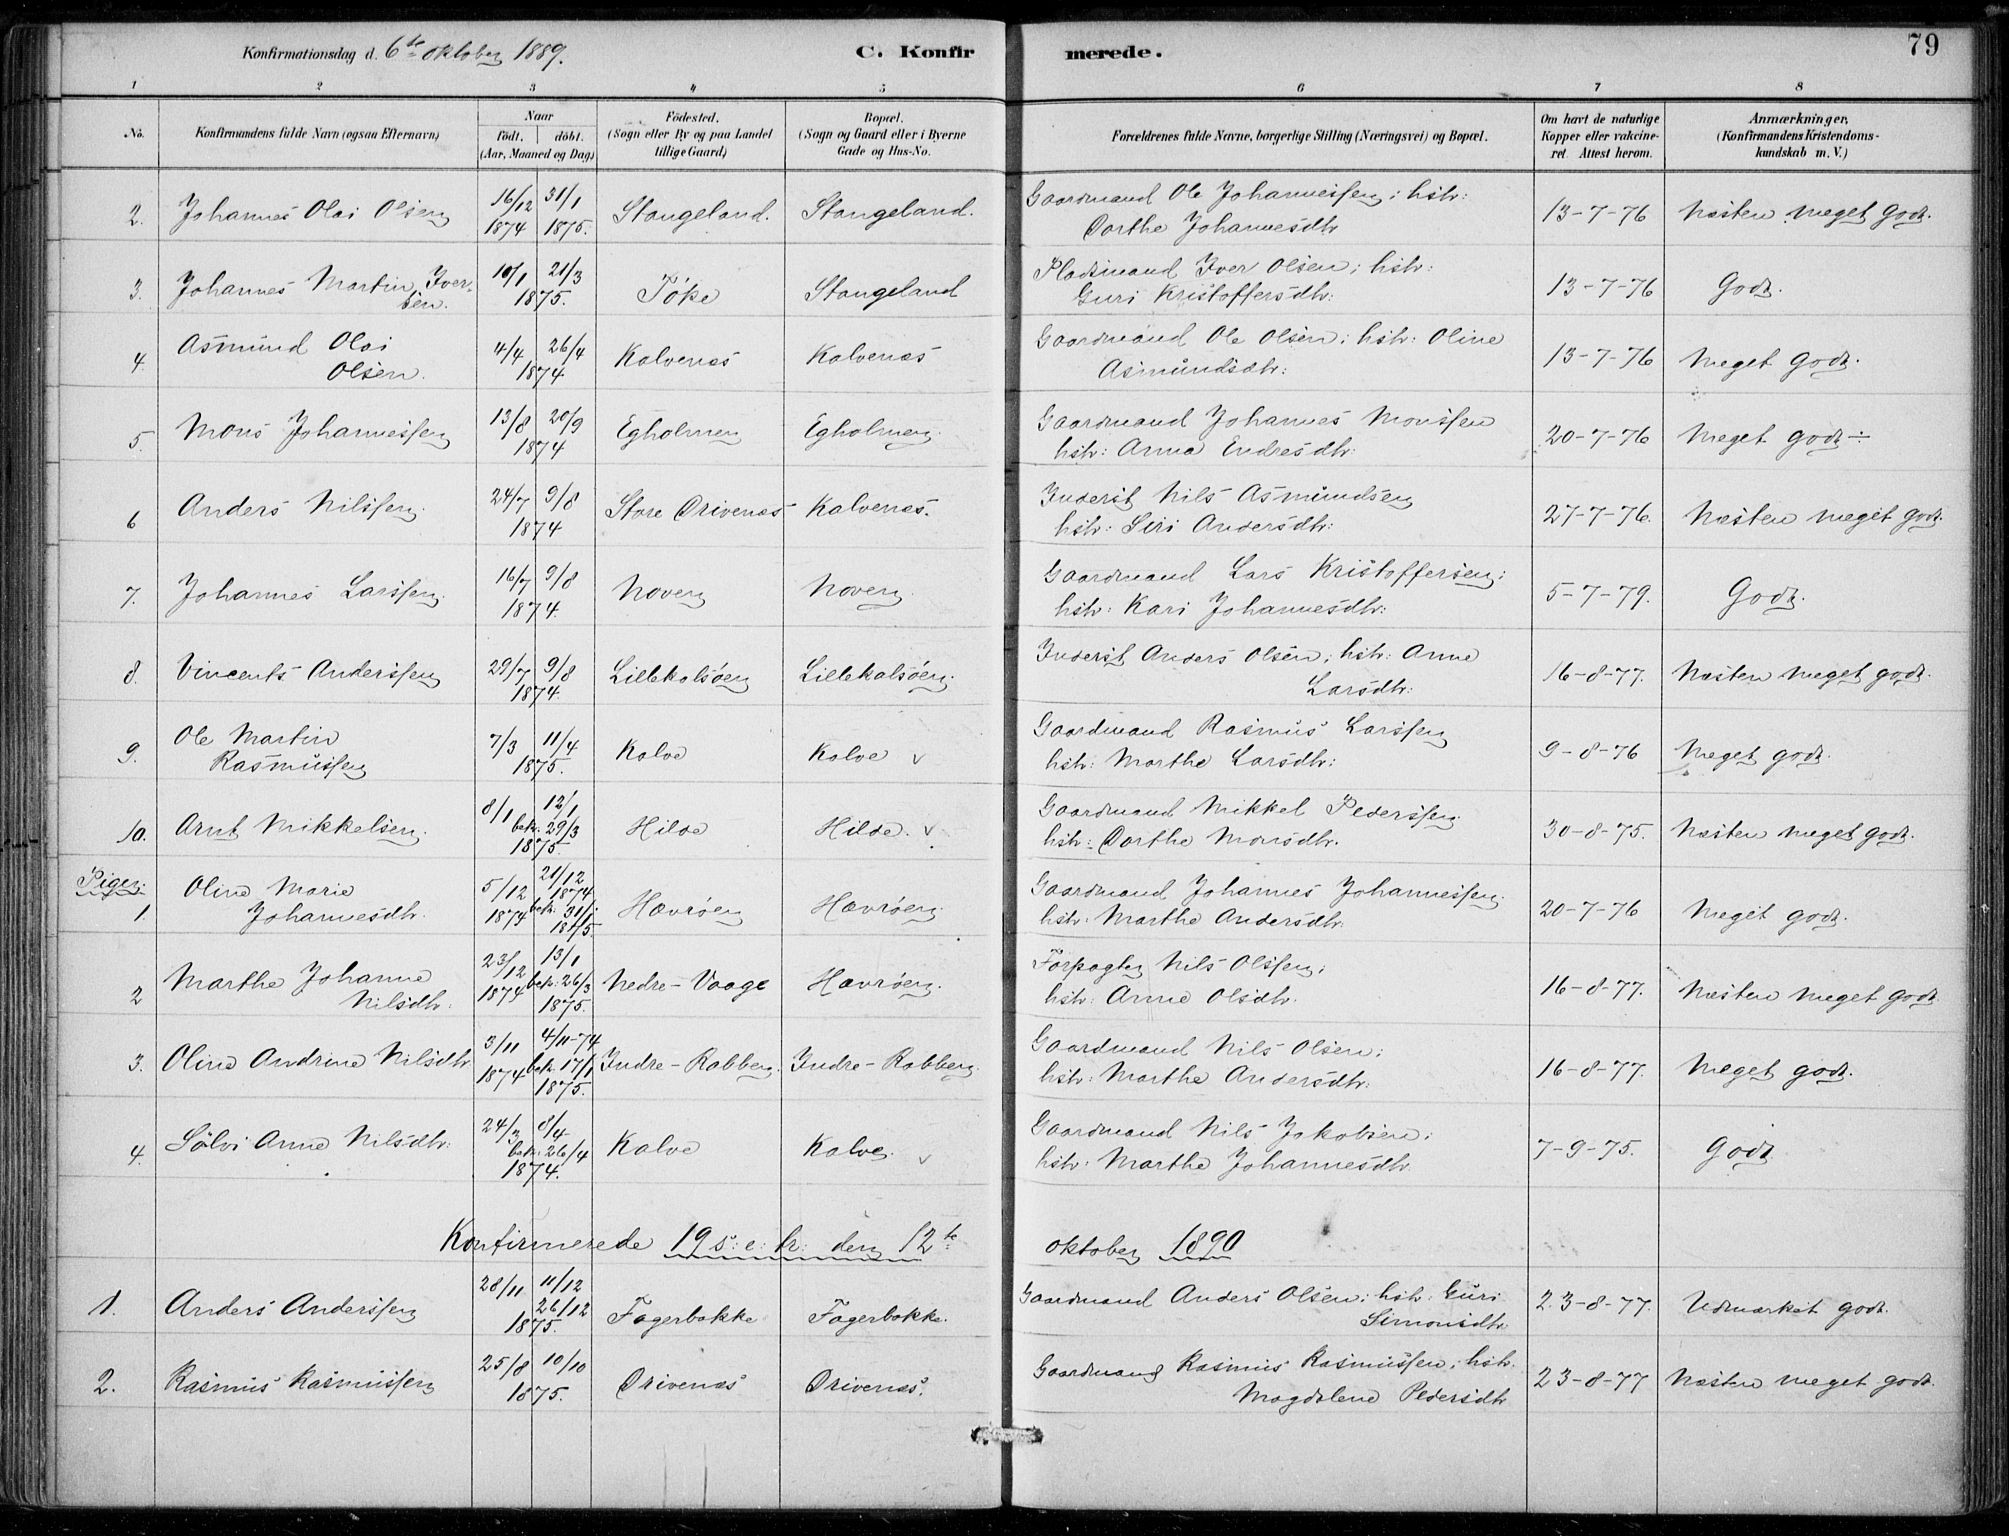 Konfirmationsdag d. 6te oktober 1889.
C. Konfir
merede.
79
1 2 3 4 5 6 7 8
No.
Konfirmandens fulde Navn (ogsaa Efternavn)
Naar
født. døbt.
(Aar, Maaned og Dag)
Fødested.
(Sogn eller By og paa Landet
tillige Gaard)
Bopæl.
(Sogn og Gaard eller i Byerne
Gade og Hus-No.
Forældrenes fulde Navne, borgerlige Stilling (Næringsvei) og Bopæl.
Om havt de naturlige
Kopper eller vakcine-
ret. Attest herom.
Anmærkninger,
(Konfirmandens Kristendoms-
kundskab m. V.)
2. Johannes Olai Olsen 16/12 1874 31/1 1875. Stangeland. Stangeland. Gaardmand Ole Johannessen; hstr:
Dorthe Johannesdtr 13-7-76 Næsten meget godt.
3. Johannes Martin Iver-
sen. 10/1 21/3 1875. Töke Stangeland Pladsmand Iver Olsen; hstr:
Guri Kristoffersdtr: 13-7-76 Godt.
4. Asmund Olai
Olsen. 4/4 26/4 1874 Kalvenæs Kalvenæs Gaardmand Ole Olsen; hstr: Oline
Asmundsdtr: 13-7-76 Meget godt.
5. Mons Johannessen 13/8 20/9 1874 Egholmen Egholmen. Gaardmand Johannes Monssen
hstr: Anna Endresdtr: 20-7-76 Meget godt ÷
6 Anders Nilssen. 24/7 9/8 1874 Store Drivenæs Kalvenæs. Inderst Nils Asmundsen
hstr: Siri Andersdtr: 27-7-76. Næsten meget godt.
7. Johannes Larssen. 16/7 9/8 1874. Noven Noven. Gaardmand Lars Kristoffersen;
hstr: Kari Johannesdtr: 5-7-79. Godt.
8. Vincents Anderssen 29/7 9/8 1874. Lillekalsöen Lillekalsöen. Inderst Anders Olsen; hstr: Anne
Larsdtr: 16-8-77. Næsten meget godt.
9. Ole Martin
Rasmussen 7/3 11/4 1875. Kalve Kalve v Gaardmand Rasmus Larssen
hstr: Marthe Larsdtr: 9-8-76 Meget godt.
10. Arnt Mikkelsen. 8/1 12/1
bek. 29/3
1875 Hilde Hilde. v Gaardmand Mikkel Pederssen.
hstr: Dorthe Monsdtr. 30-8-75. Næsten meget godt.
Piger:
1. Oline Marie
Johannesdtr. 5/12 1874 21/12 1874
bek. 31/1 1875. Havröen Havröen. Gaardmand Johannes Johannessen.
hstr: Marthe Andersdtr. 20-7-76 Meget godt.
2 Marthe Johanne
Nilsdtr. 23/12 1874 13/1
bek: 26/3
1875. Nedre-Vaage Havröen. Forpagter Nils Olssen;
hstr: Anne Olsdtr. 16-8-77. Næsten meget godt
3. Oline Andrine Nilsdtr 3/11 1874 4/11-74
bek. 17/1
1875. Indre-Rabben. Indre-Rabben. Gaardmand Nils Olsen;
hstr: Marthe Andersdtr: 16-8-77. Meget godt.
4. Sölvi Anne Nilsdtr: 24/3 8/4
bek: 26/4
1874. Kalve Kalve. v Gaardmand Nils Jakobsen;
hstr: Marthe Johannesdtr. 7-9-75. godt
Konfirmerede 19 s: e: tr: den 12te oktober 1890
1. Anders Anderssen 28/11 11/12
26/12
1875. Fagerbakke Fagerbakke. Gaardmand Anders Olsen; hstr: Guri
Simonsdtr 23-8-77. Udmærket godt.
2. Rasmus Rasmussen 25/8 10/10 1875. Drivenæs Drivenæs. Gaardmand Rasmus Rasmussen; hstr.
Magdalene Pedersdtr 23-8-77 Næsten meget godt.